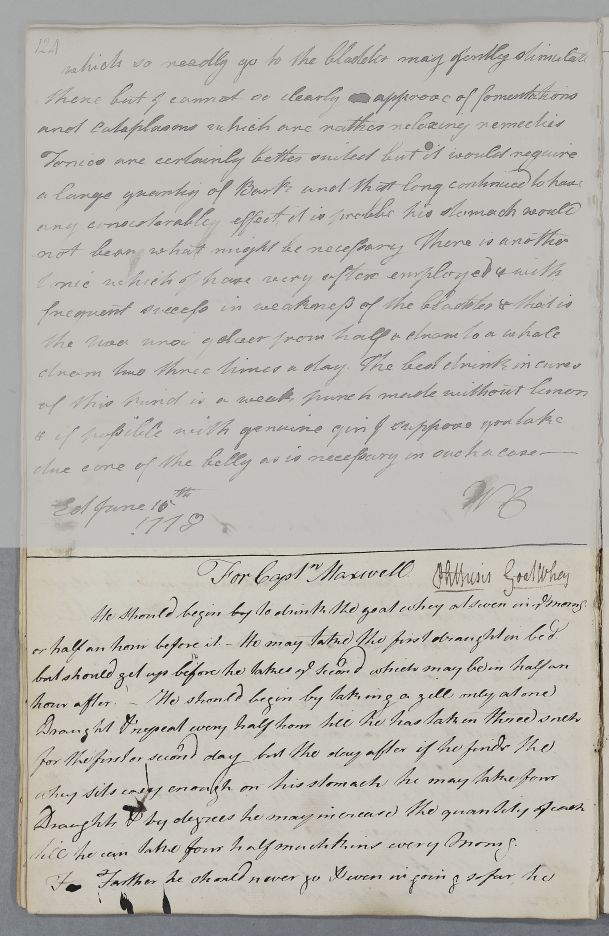 124
which so readly go to the bladder may gently stimulate
there but I cannot so clearly approve of fomentations
and Cataplasms which are rather relaxing remedies
Tonics are certainly better suited but it would require
a large quantity of Bark and that long continued to have
any considerably effect, it is probbe his stomach would
not bear what might be necessary There is another
Tonic which I have very often employed & with
frequent success in weakness of the bladder & that is
the uva ursi powder from half a dram to a whole
dram two three times a day. The best drink in cures
of this kind is a weak punch made without limon
& if possible with genuine gin I suppose you take
due care of the belly as is necessary in such a case
Ed June 16th
WC
For Captn Maxwell Phthisis Goat Whey
He should begin by to drink the goat whey at seven in ye morng
or half an hour before it - He may take the first draught in bed
but should get up before he takes ye second which may be in half an
hour after. - He should begin by taking a gill only at one
Draught & repeat every half hour till he has taken three such
for the first or second day but the day after if he finds the
whey sits easy enough on his stomach he may take four
Draughts & by degrees he may increase the quantity of each
till he can take four half mutchkins every Morng.
Farther he should never go & even in going so far he